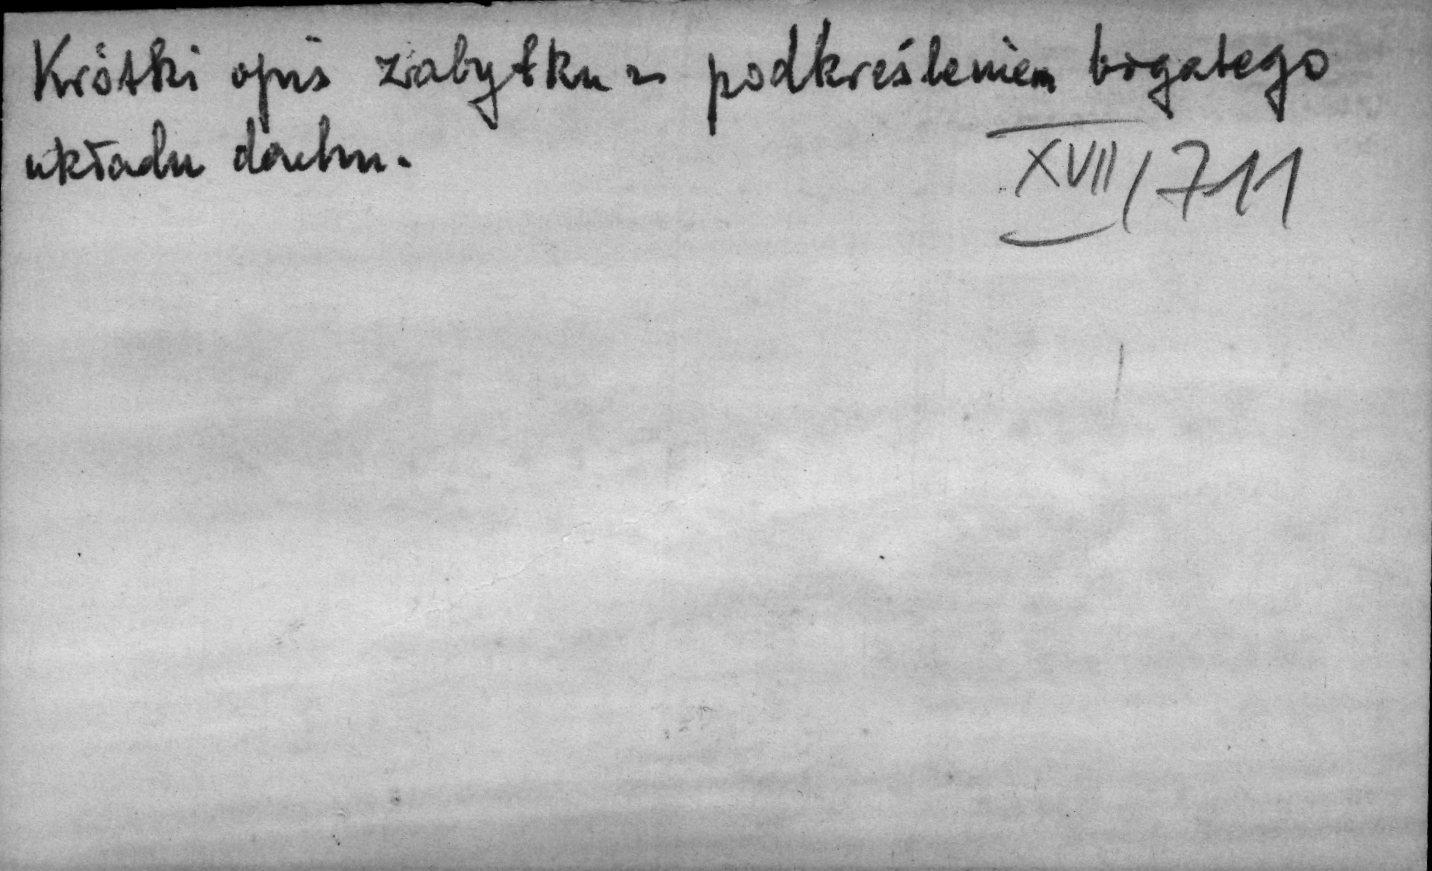 Krótki opis zabytku z podkreśleniem bogatego
układu dachu.
XVII/711